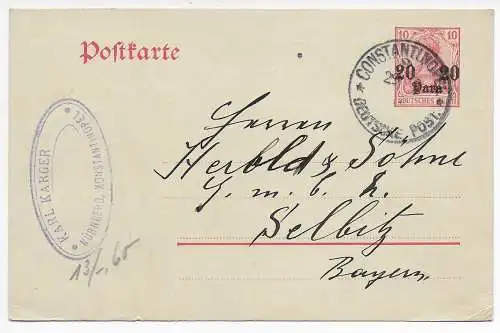 Postkarte
10 10
20 20
Para
DEUTSCHES
CONSTANTINOPEL
DEUTSCHE POST.
KARL KARGER
NÜRNBERG, KONSTANTINOPEL
Herren
Herbld & Sohne
G. m. b. H.
Selbitz
Bayern